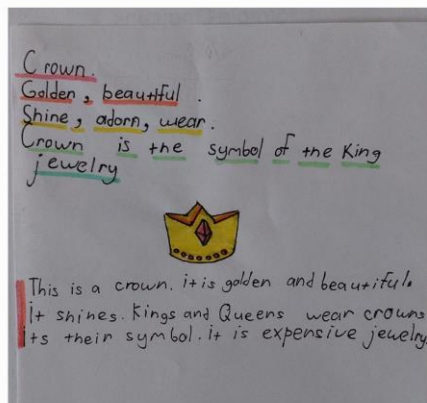 Crown.
Golden, beautiful.
Shine, adorn, wear.
Crown is the symbol of the King
jewelry
This is a crown. it is golden and beautiful.
It shines. Kings and Queens wear crowns
its their symbol. it is expensive jewelry.